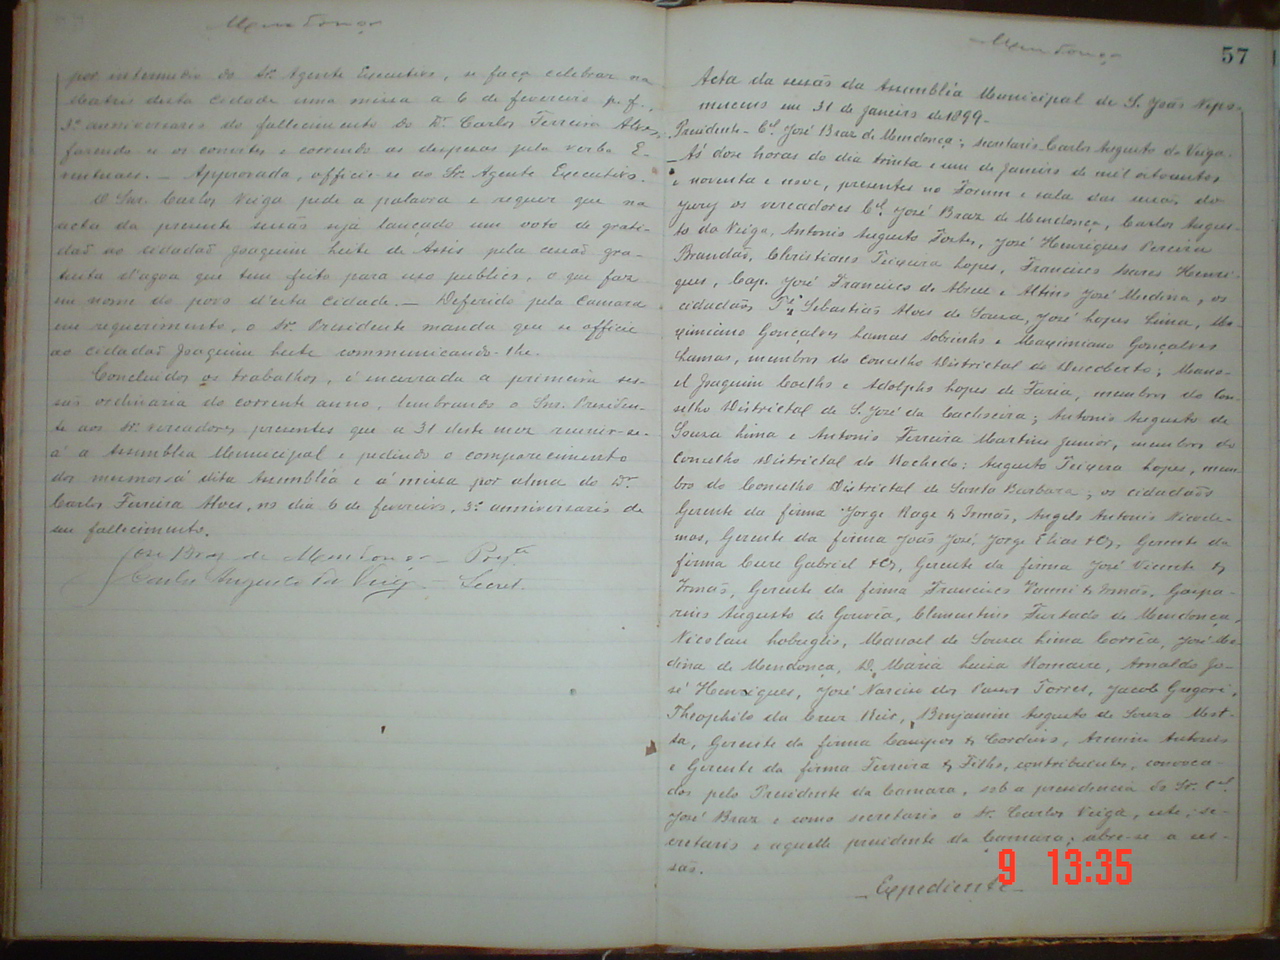 Mendonça
por intermedio do Sr. Agente Executivo, se faça celebrar na
Matris desta cidade uma missa a 6 de fevereiro p. f.,
3º anniversario do fallecimento do Dr. Carlos Ferreira Alves,
fazendo-se os convites e correndo as despesas pela verba E-
ventuaes. — Approvada, officie-se ao Sr. Agente Executivo.
O Snr. Carlos Veiga pede a palavra e requer que na
acta da presente sessão seja lançado um voto de grati-
dão ao cidadão Joaquim Leite de Assis pela cessão gra-
tuita d'agoa que tem feito para uso publico, o que faz
em nome do povo d'esta cidade. — Deferido pela Camara
em requerimento, o Sr. Presidente manda que se officie
ao cidadão Joaquim Leite communicando-lhe.
Concluidos os trabalhos, é encerrada a primeira ses-
são ordinaria do corrente anno, lembrando o Snr. Presiden-
te aos Srs. vereadores presentes que a 31 deste mez reunir-se-
á a Assembléa Municipal e pedindo o comparecimento
dos mesmos á dita Assembléa e á missa por alma do Dr.
Carlos Ferreira Alves, no dia 6 de fevereiro, 3º anniversario de
seu fallecimento.
José Braz de Mendonça — Presté
Carlos Augusto da Veiga — Secret.
Mendonça
57
Acta da sessão da Assembléa Municipal de S. João Nepo-
muceno em 31 de Janeiro de 1899-
Presidente- Cel. José Braz de Mendonça; secretario- Carlos Augusto da Veiga.
Ás dose horas do dia trinta e um de Janeiro de mil oitocentos
e noventa e nove, presentes no Forum e sala das sessões do
jury os vereadores Cel. José Braz de Mendonça, Carlos Augus-
to da Veiga, Antonio Augusto Fortes, José Henriques Pereira
Brandão, Christiano Teixeira Lopes, Francisco Soares Henri-
ques, Cap. José Francisco de Abreu e Altino José Medina, os
cidadãos Pe. Sebastião Alves de Souza, José Lopes Lima, Ma-
ximiano Gonçalves Lamas Sobrinho e Maximiano Gonçalves
Lamas, membros do Conselho Districtal do Descoberto; Mano-
el Joaquim Coelho e Adolpho Lopes de Faria, membros do Con-
selho Districtal de S. José da Cachoeira; Antonio Augusto de
Souza Lima e Antonio Ferreira Martins Junior, membros do
Conselho Districtal do Rochedo; Augusto Teixeira Lopes, mem-
bro do Conselho Districtal de Santa Barbara; os cidadãos
Gerente da firma Jorge Rage & Irmão, Angelo Antonio Nicode-
mos, Gerente da firma João José, Jorge Elias & Cª, Gerente da
firma Cure Gabriel & Cª, Gerente da firma José Vicente &
Irmão, Gerente da firma Francisco Vanni & Irmão, Gaspa-
rino Augusto de Gouvêa, Clementino Furtado de Mendonça,
Nicolau Lobuglio, Manoel de Souza Lima Corrêa, José Me-
dina de Mendonça, D. Maria Luiza Romaire, Arnaldo Jo-
sé Henriques, José Narciso dos Passos Torres, Jacob Gregori,
Theophilo da Cruz Reis, Benjamin Augusto de Souza Mot-
ta, Gerente da firma Campos & Cordeiro, Antonio
e Gerente da firma Ferreira & Filho, contribuentes, convoca-
dos pelo Presidente da Camara, sob a presidencia do Sr. Cel.
José Braz e como secretario o Sr. Carlos Veiga, este, se-
cretario e aquelle presidente da Camara; abre-se a ses-
são.
— Expediente —
9 13:35